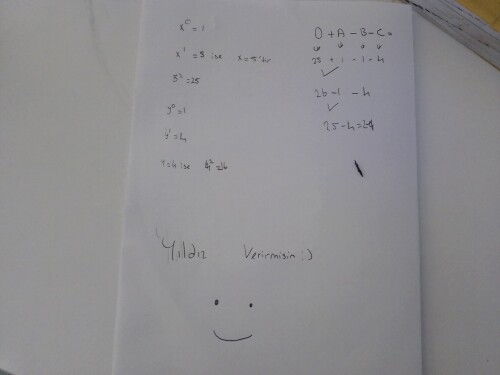 x⁰ = 1
x¹ = 5 ise x = 5 'tir
5² = 25
y⁰ = 1
y¹ = 4
y = 4 ise 4² = 16
D + A - B - C =
25 + 1 - 1 - 4
26 - 1 - 4
25 - 4 = 24
Yıldız Verirmisin :)